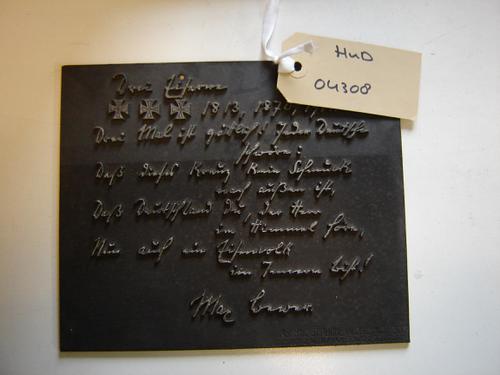 HuD
04308
Drei Eiserne
1813, 1870, 1
Drei Mal ist göttlich! Jeder Deutsche
schwöre:
Daß dieses Kreuz kein Schmuck
nach außen ist,
Daß Deutschland du, der Herr
im Himmel höre,
Nun auch ein Eisenvolk
im Innern bist!
Max Bewer.